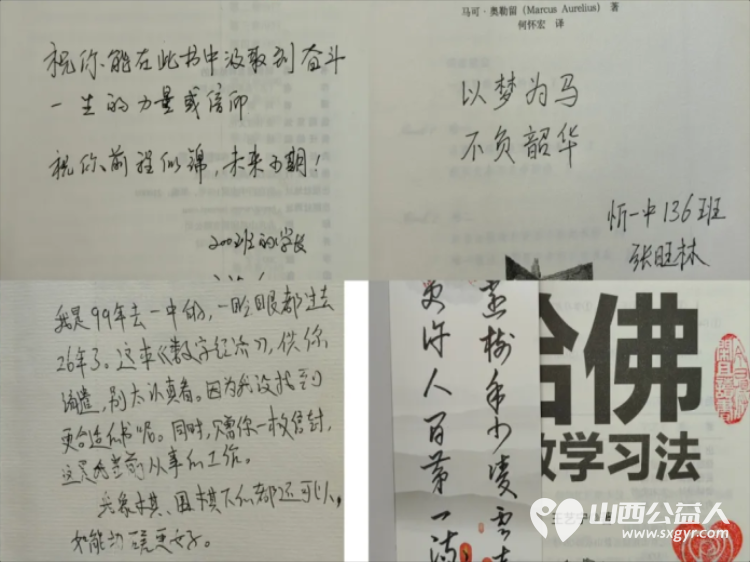 祝你能在此书中汲取到奋斗
一生的力量或信仰
祝你前程似锦，未来可期！
200班的学长
马可·奥勒留（Marcus Aurelius）著
何怀宏 译
以梦为马
不负韶华
忻一中136班
张旺林
我是99年去一中的，一眨眼都过去
26年了。这本《数字经济》，供你
消遣，别太认真看。因为我没找到
更合适的书呢。同时，赠你一枚信封，
这是我当前从事的工作。
象棋、围棋下的都还可以，
蕉树年少凌云
更许人间第一流
哈佛
学习法
山西公益人
www.sxgyr.com